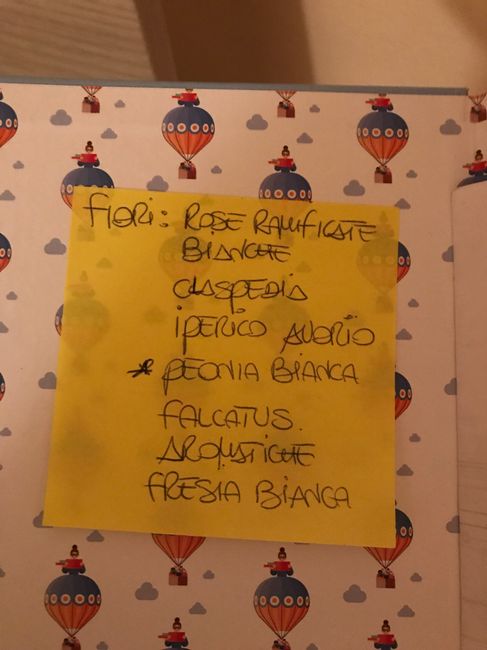 FIORI: ROSE RAMIFICATE
BIANCHE
CLASPEDIA
IPERICO AVORIO
* PEONIA BIANCA
FALCATUS.
AROMATICHE
FRESIA BIANCA